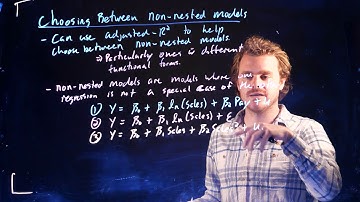 Choosing Between non-nested models
- Can use adjusted-R² to help
choose between non-nested models.
⇒ Particularly ones w/ different
functional forms.
- non-nested models are models where one
regression is not a special case of the
① Y = B₀ + B₁ ln(Sales) + B₂ Pay + u
② Y = B₀ + B₁ ln(Sales) + ε
③ Y = B₀ + B₁ Sales + B₂ Sales² + u